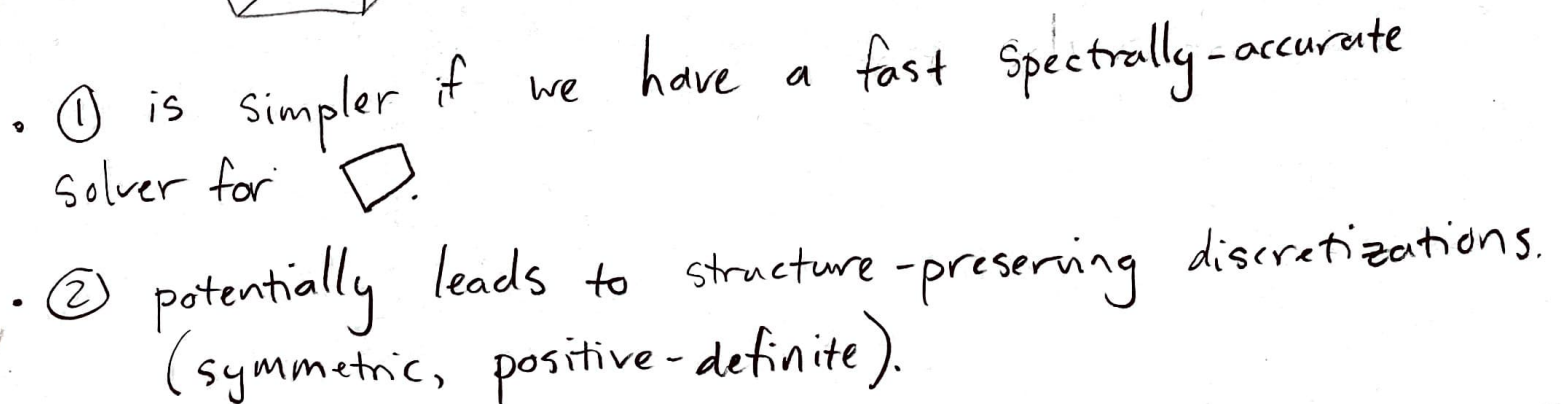 • ① is simpler if we have a fast spectrally-accurate
solver for ▱.
• ② potentially leads to structure-preserving discretizations.
(symmetric, positive-definite).